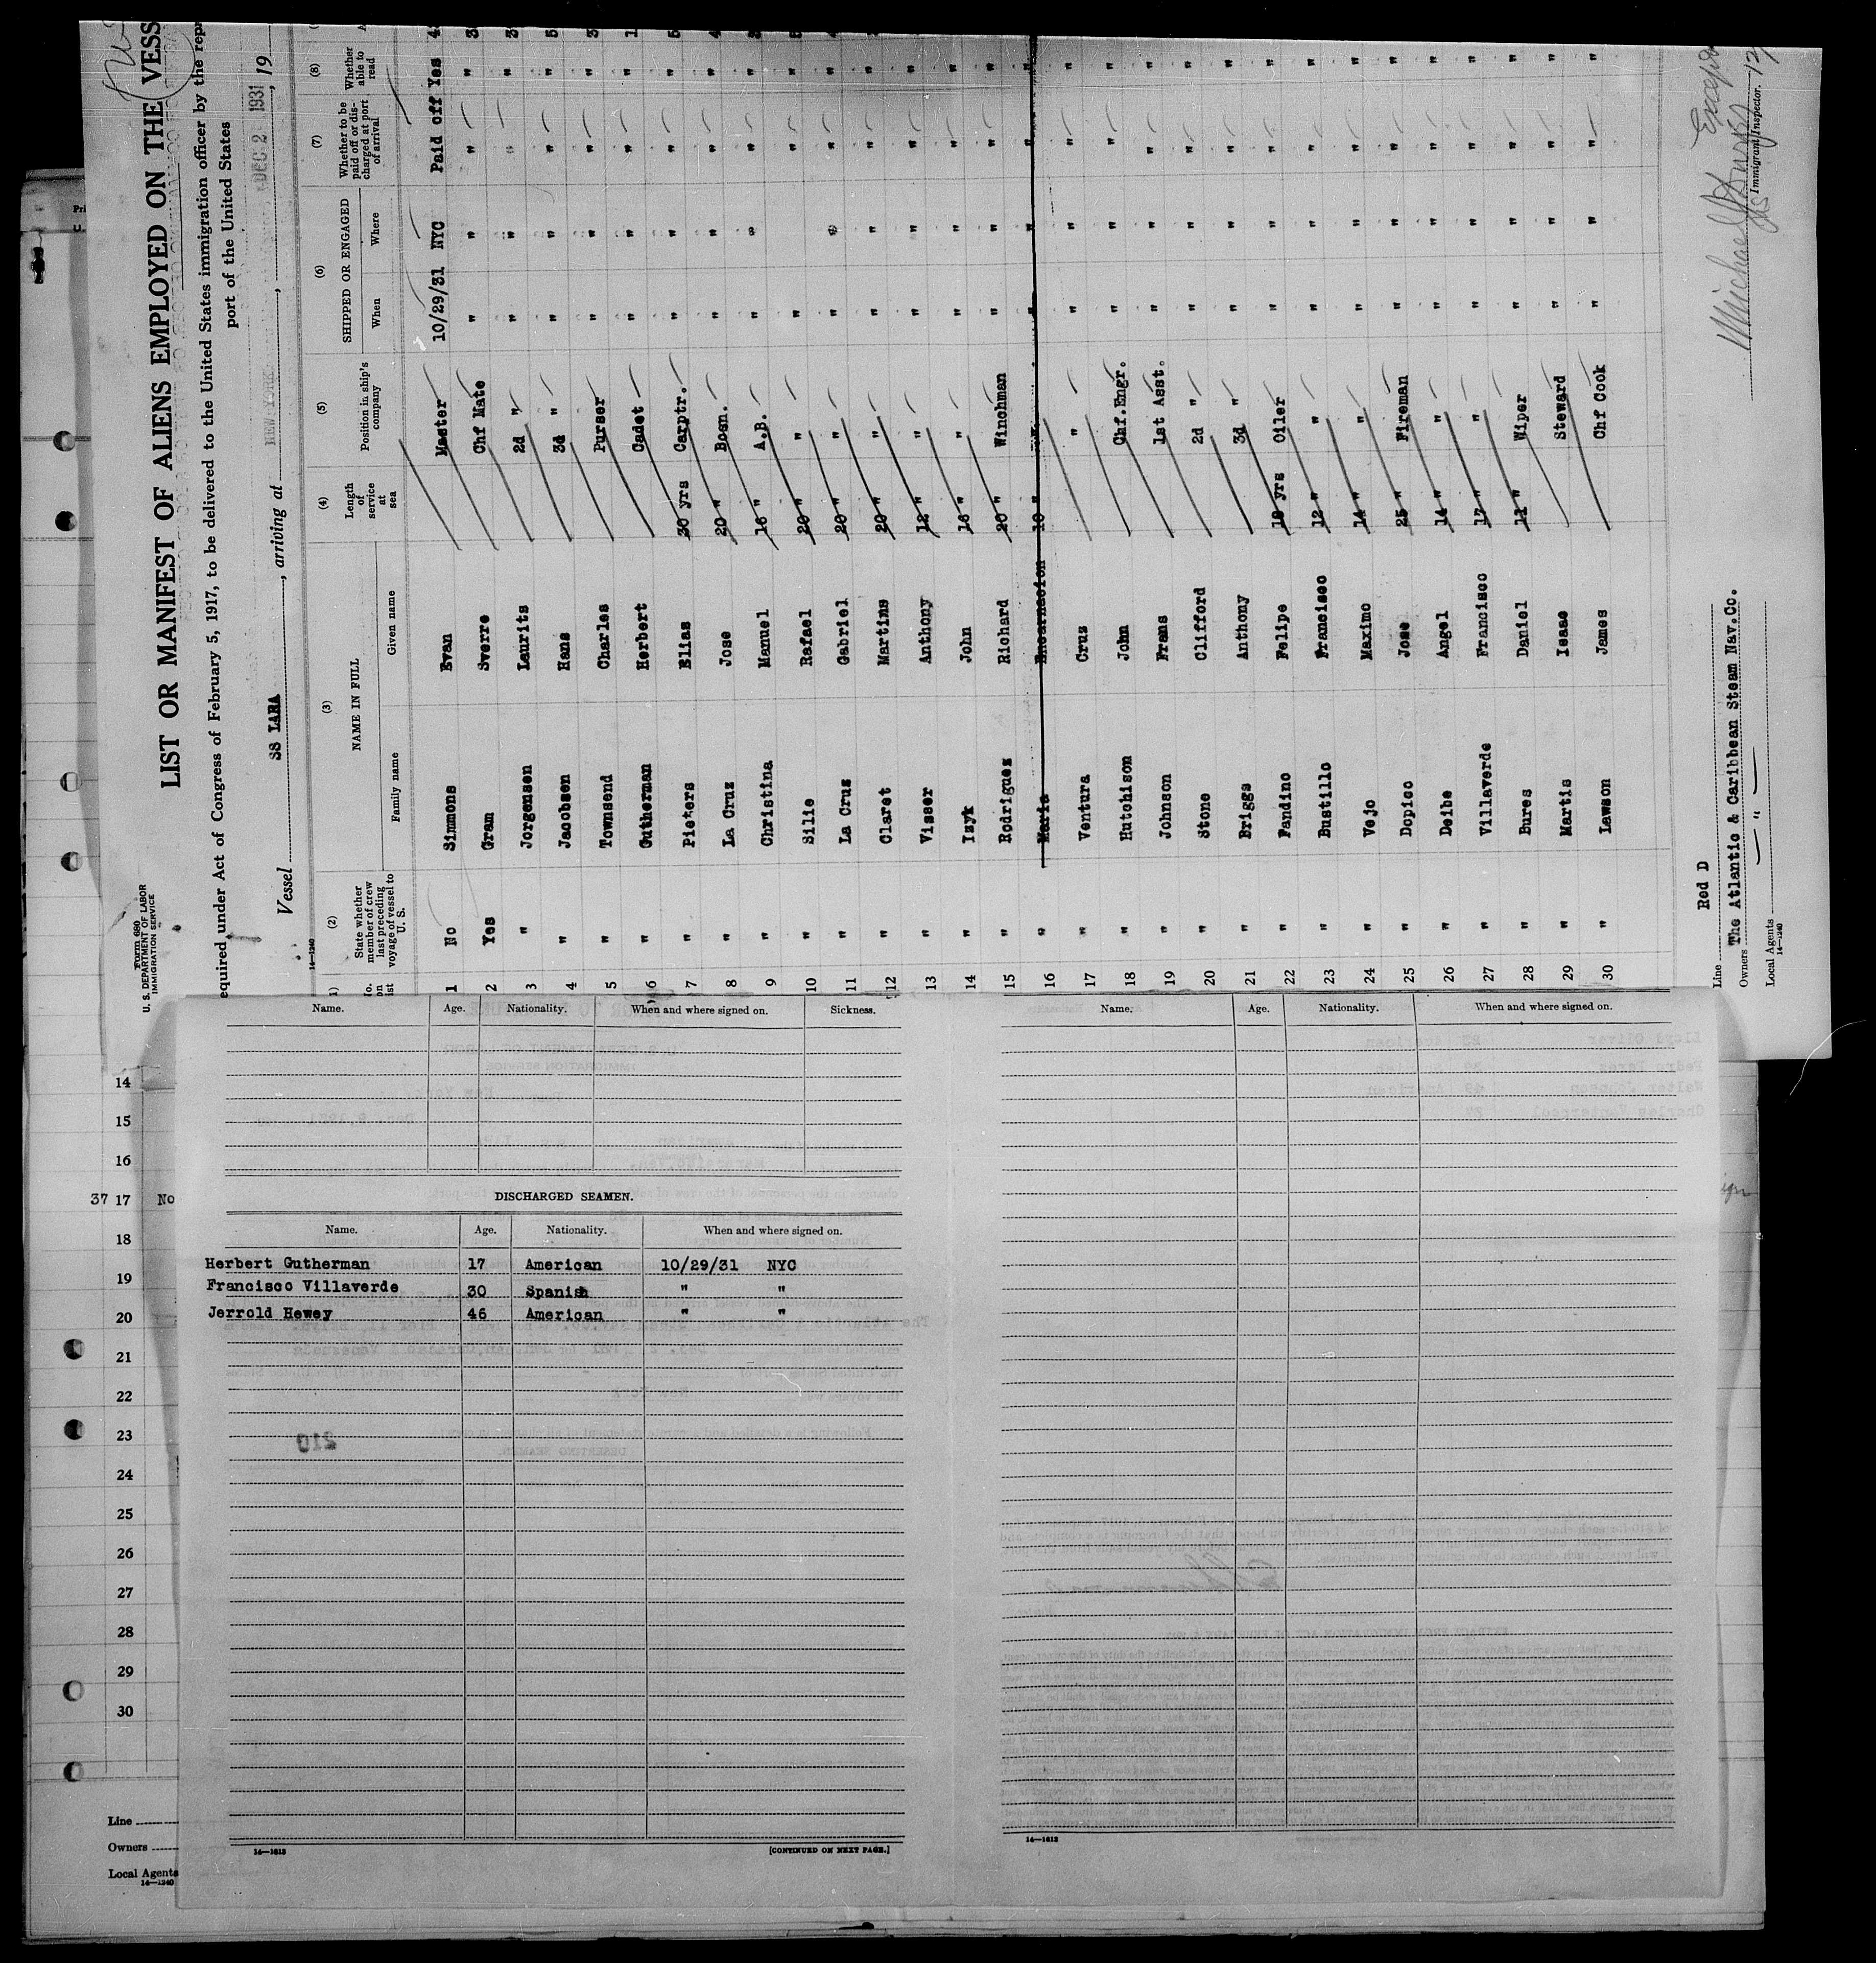 Form 680
U. S. DEPARTMENT OF LABOR
IMMIGRATION SERVICE
LIST OR MANIFEST OF ALIENS EMPLOYED ON THE VESS
equired under Act of Congress of February 5, 1917, to be delivered to the United States immigration officer by the repr
port of the United States
Vessel SS LARA, arriving at NEW YORK, DEC 2 1931, 19
14-1240
(2) (3) (4) (5) (6) (7) (8)
State whether member of crew last preceding voyage of vessel to U. S.
NAME IN FULL
Family name Given name
Length of service at sea
Position in ship's company
SHIPPED OR ENGAGED
When Where
Whether to be paid off or discharged at port of arrival
Whether able to read
1 No Simmons Evan Master 10/29/31 NYC Paid off Yes
2 Yes Gram Sverre Chf Mate " " " "
3 " Jorgensen Laurits 2d " " " " "
4 " Jacobsen Hans 3d " " " " "
5 " Townsend Charles Purser " " " "
6 " Gutherman Herbert Cadet " " " "
7 " Pieters Elias 30 yrs Carptr. " " " "
8 " La Cruz Jose 20 " Bosn. " " " "
9 " Christina Manuel 16 " A.B. " " " "
10 " Silie Rafael 20 " " " " "
11 " La Cruz Gabriel 20 " " " " " "
12 " Claret Martins 20 " " " " " "
13 " Visser Anthony 12 " " " " " "
14 " Izyk John 16 " " " " " "
15 " Rodriguez Richard 20 " Winchman " " " "
16 " Maria Encarnacion 10 " " " " "
17 " Ventura Cruz " " " " "
18 " Hutchison John Chf.Engr. " " " "
19 " Johnson Frans 1st Asst. " " " "
20 " Stone Clifford 2d " " " " "
21 " Briggs Anthony 3d " " " " "
22 " Fandino Felipe 18 yrs Oiler " " " "
23 " Bustillo Francisco 12 " " " " " "
24 " Vejo Maximo 14 " " " " " "
25 " Dopico Jose 25 " Fireman " " " "
26 " Deibe Angel 14 " " " " " "
27 " Villaverde Francisco 17 " " " " " "
28 " Bures Daniel 11 " Wiper " " " "
29 " Martis Isaac Steward " " " "
30 " Lawson James Chf Cook " " " "
Line Red D
Owners The Atlantic & Caribbean Steam Nav.Co.
Local Agents "
14-1240
Immigrant Inspector.
Name. Age. Nationality. When and where signed on. Sickness.
DISCHARGED SEAMEN.
Name. Age. Nationality. When and where signed on.
Herbert Gutherman 17 American 10/29/31 NYC
Francisco Villaverde 30 Spanish " "
Jerrold Hewey 46 American " "
14-1613
[CONTINUED ON NEXT PAGE.]
Name. Age. Nationality. When and where signed on.
14-1613
14
15
16
37 17 No
18
19
20
21
22
23
24
25
26
27
28
29
30
Line
Owners
Local Agents
14-1240